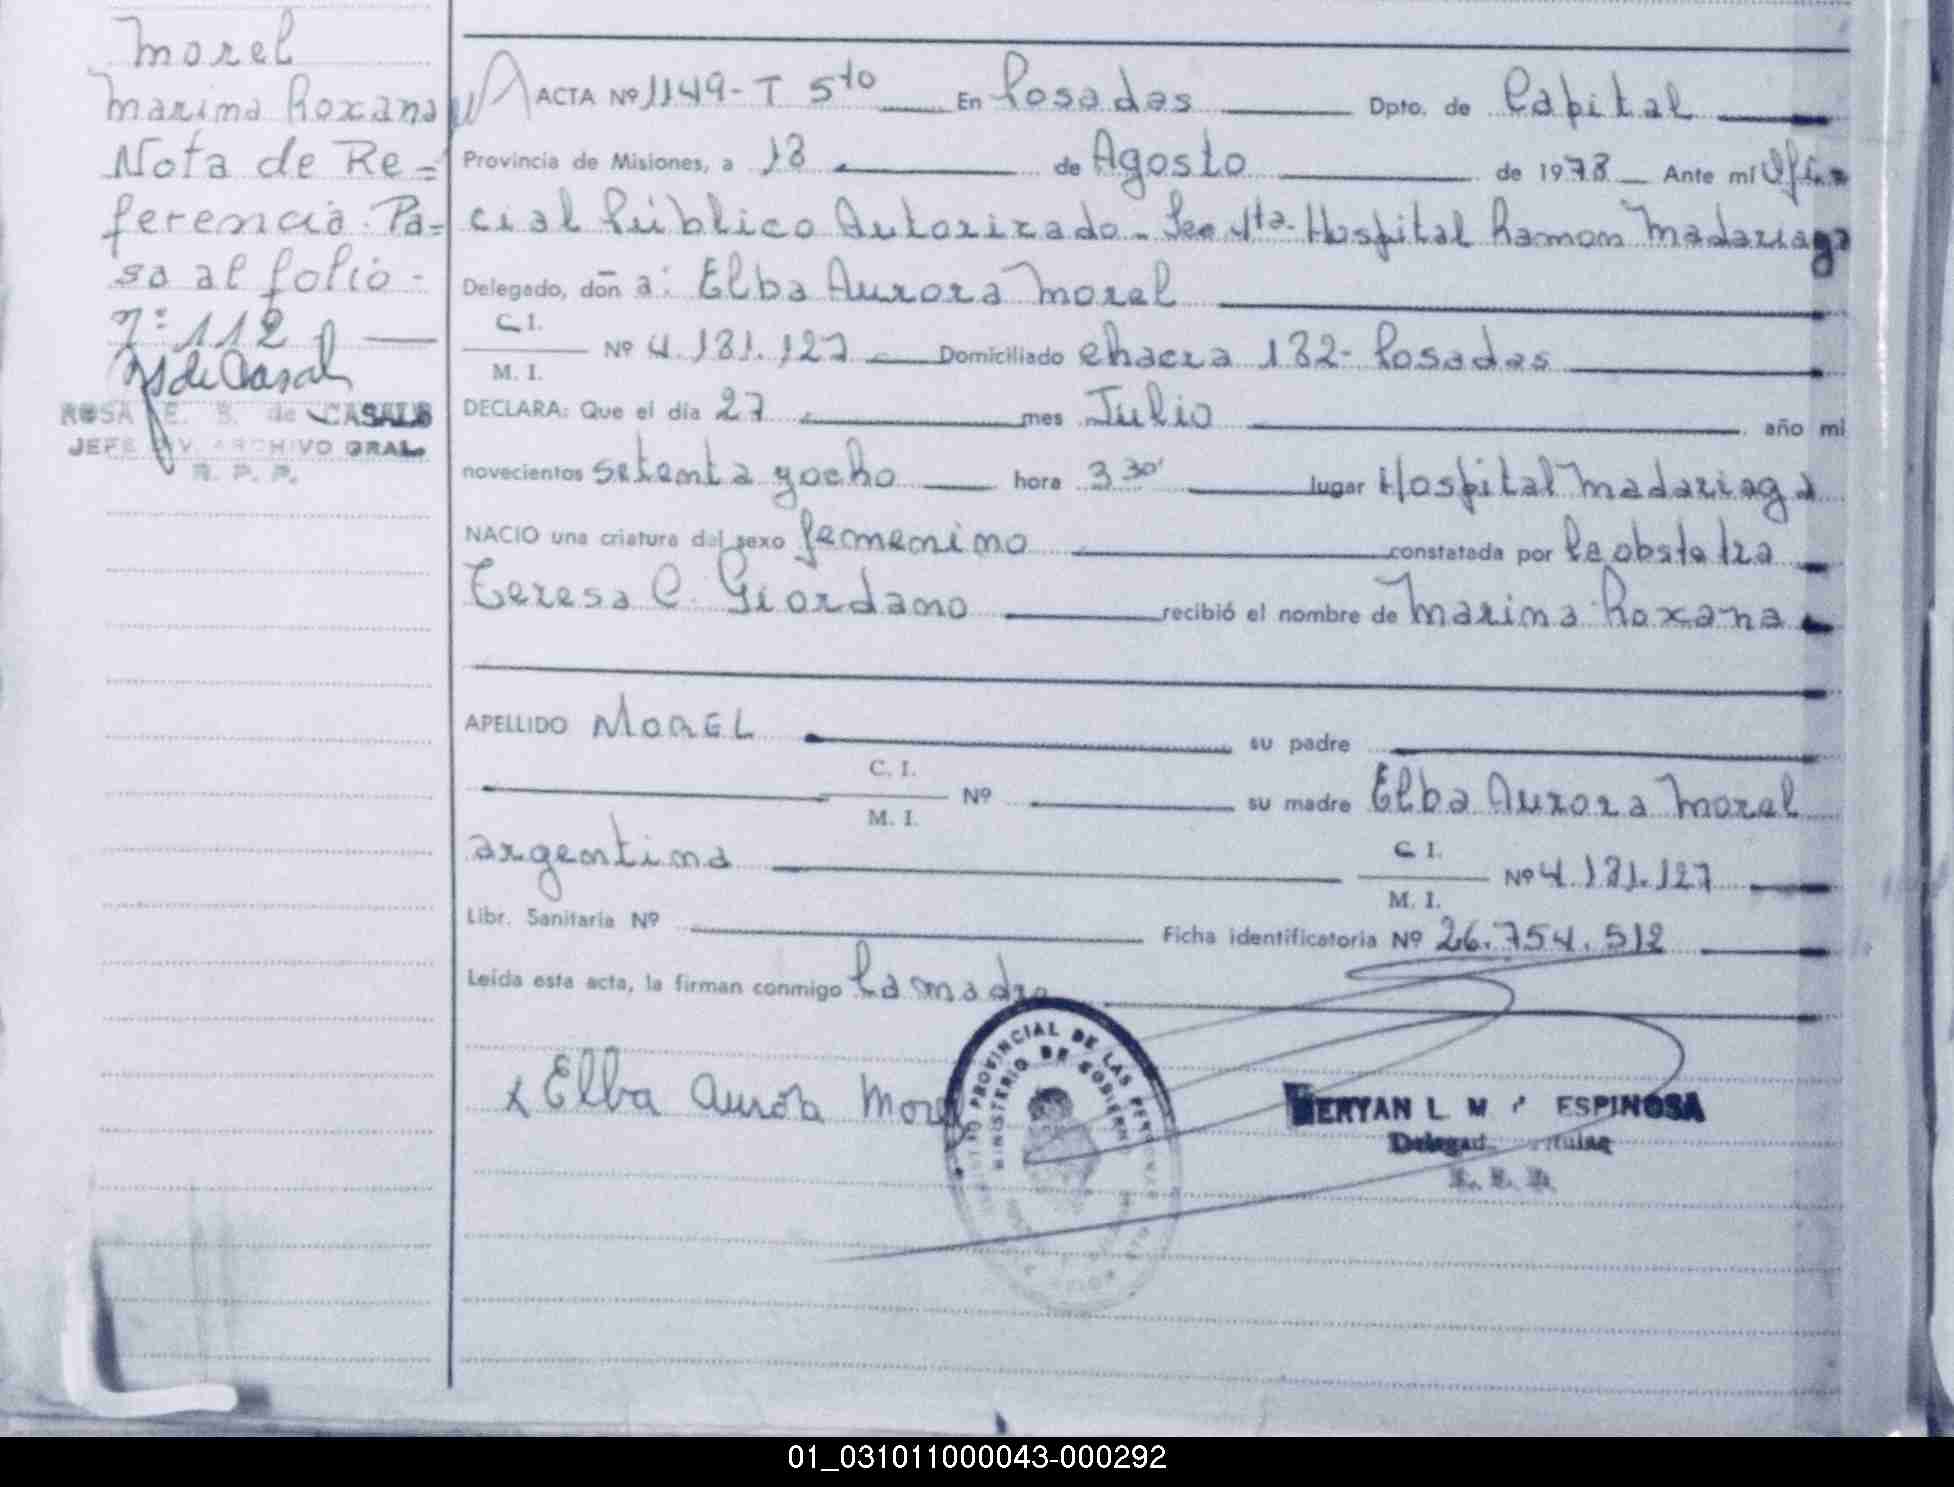 Morel
Marina Roxana
Nota de Re=
ferencia. Pa=
sa al folio -
nº 112
ROSA E. B. de CASALS
JEFE DIV. ARCHIVO GRAL.
R. P. P.
ACTA Nº 1149 - T 5to En Posadas Dpto. de Capital
Provincia de Misiones, a 18 de Agosto de 1978 Ante mí Ofi=
cial Público Autorizado - Sec 4ta - Hospital Ramon Madariaga
Delegado, don a: Elba Aurora Morel
C. I.
M. I. Nº 4.131.127 Domiciliado chacra 132 - Posadas
DECLARA: Que el día 27 mes Julio año mil
novecientos setenta y ocho hora 3 30' lugar Hospital Madariaga
NACIO una criatura del sexo femenino constatada por la obstetra
Teresa C. Giordano recibió el nombre de Marina Roxana
APELLIDO MOREL su padre
C. I.
M. I. Nº su madre Elba Aurora Morel
argentina C. I.
M. I. Nº 4.131.127
Libr. Sanitaria Nº Ficha identificatoria Nº 26.754.512
Leída esta acta, la firman conmigo la madre
x Elba Aurora Morel
PROVINCIAL DE LAS PERSONAS
MINISTERIO DE GOBIERNO
ESPINOSA
01_031011000043-000292